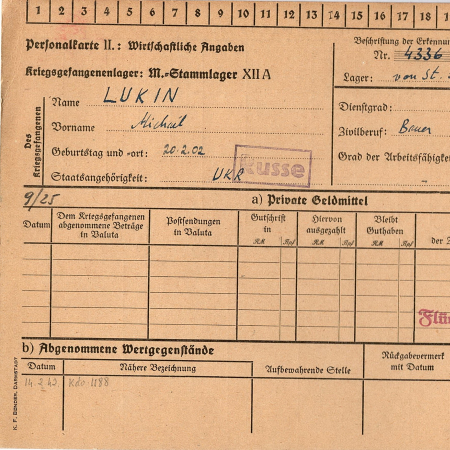 1 2 3 4 5 6 7 8 9 10 11 12 13 14 15 16 17 18
Personalkarte II.: Wirtschaftliche Angaben
Beschriftung der Erkennu
Nr. 4336
Kriegsgefangenenlager: M.-Stammlager XII A
Lager: von St.
Des Kriegsgefangenen
Name LUKIN
Vorname Michail
Geburtstag und -ort: 20.2.02
Staatsangehörigkeit: UKR
Russe
Dienstgrad:
Zivilberuf: Bauer
Grad der Arbeitsfähigkei
9/25
a) Private Geldmittel
Datum
Dem Kriegsgefangenen abgenommene Beträge in Valuta
Postsendungen in Valuta
Gutschrift in
RM Rpf
Hiervon ausgezahlt
RM Rpf
Bleibt Guthaben
RM Rpf
der
Flü
b) Abgenommene Wertgegenstände
Datum
Nähere Bezeichnung
Aufbewahrende Stelle
Rückgabevermerk mit Datum
Kdo 1188
K. F. BENDER, DARMSTADT